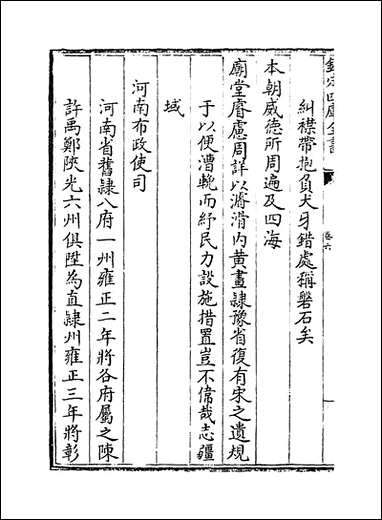 欽定四庫全書
卷六
糾襟帶抱負犬牙錯處稱磐石矣
本朝威德所周遍及四海
廟堂睿慮周詳以濬滑內黃畫隸豫省復有宋之遺規
于以便漕輓而紓民力設施措置豈不偉哉志疆
域
河南布政使司
河南省舊隸八府一州雍正二年將各府屬之陳
許禹鄭陝光六州俱陞為直隸州雍正三年將彰